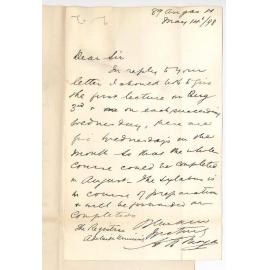 89 Angas St
May 14/98
Dear Sir
In reply to your
letter I should like to give
the first lecture on Aug
3rd & one on each succeeding
Wednesday, there are
five Wednesdays in the
month so that the whole
course could be completed
in August. The sylabus is
in course of preparation
& will be forwarded on
completion
The Registrar
Adelaide University